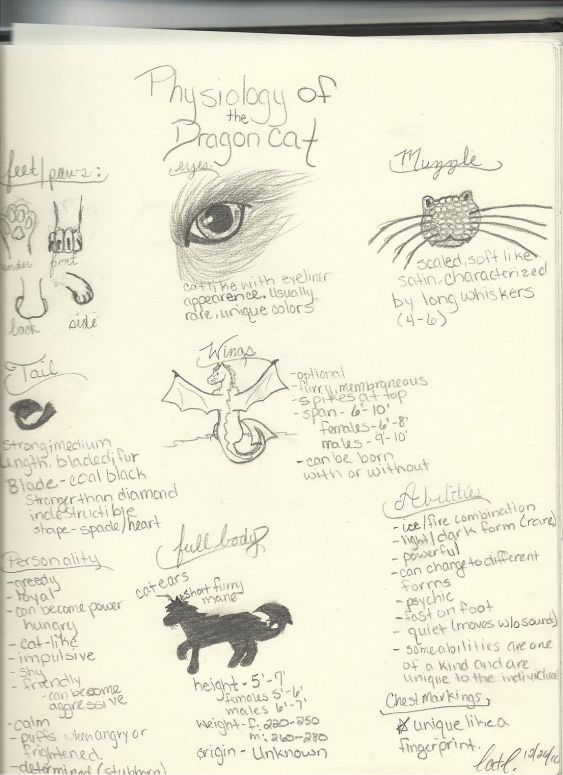 Physiology of
the
Dragon cat
feet/paws:
under
front
back
side
eyes
catlike with eyeliner
appearence. Usually
rare, unique colors
Muzzle
scaled, soft like
satin, characterized
by long whiskers
(4-6)
Tail
strong; medium
length, bladed; fur
Blade - coal black
stronger than diamond
indestructible
shape - spade/heart
Wings
-optional
-furry, membraneous
-spikes at top
-span - 6'-10'
females - 6'-8'
males - 9'-10'
-can be born
with or without
Personality
-greedy
-loyal
-can become power
hungry
-cat-like
-impulsive
-shy
friendly
-can become
aggressive
-calm
-puffs when angry or
frightened.
-determined (stubborn)
full body
cat ears
short furry
mane
height - 5'-7'
females 5'-6'
males 6'-7'
Weight - f: 220-250
m: 260-280
origin - Unknown
Abilities
-ice/fire combination
-light/dark form (rare)
-powerful
-can change to different
forms
-psychic
-fast on foot
-quiet (moves w/o sound)
-some abilities are one
of a kind and are
unique to the individual
Chest markings
unique like a
fingerprint.
12/26/10